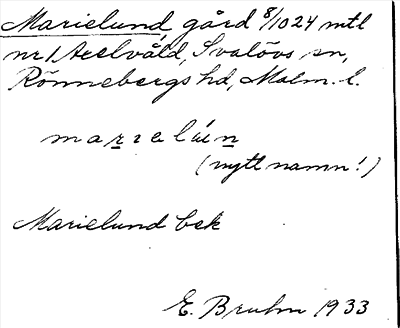 Marielund, gård 8/1024 mtl
nr 1 Axelvåld, Svalövs sn,
Rönnebergs hd, Malm. l.
marielún
(nytt namn!)
Marielund bek
E. Bruhn 1933